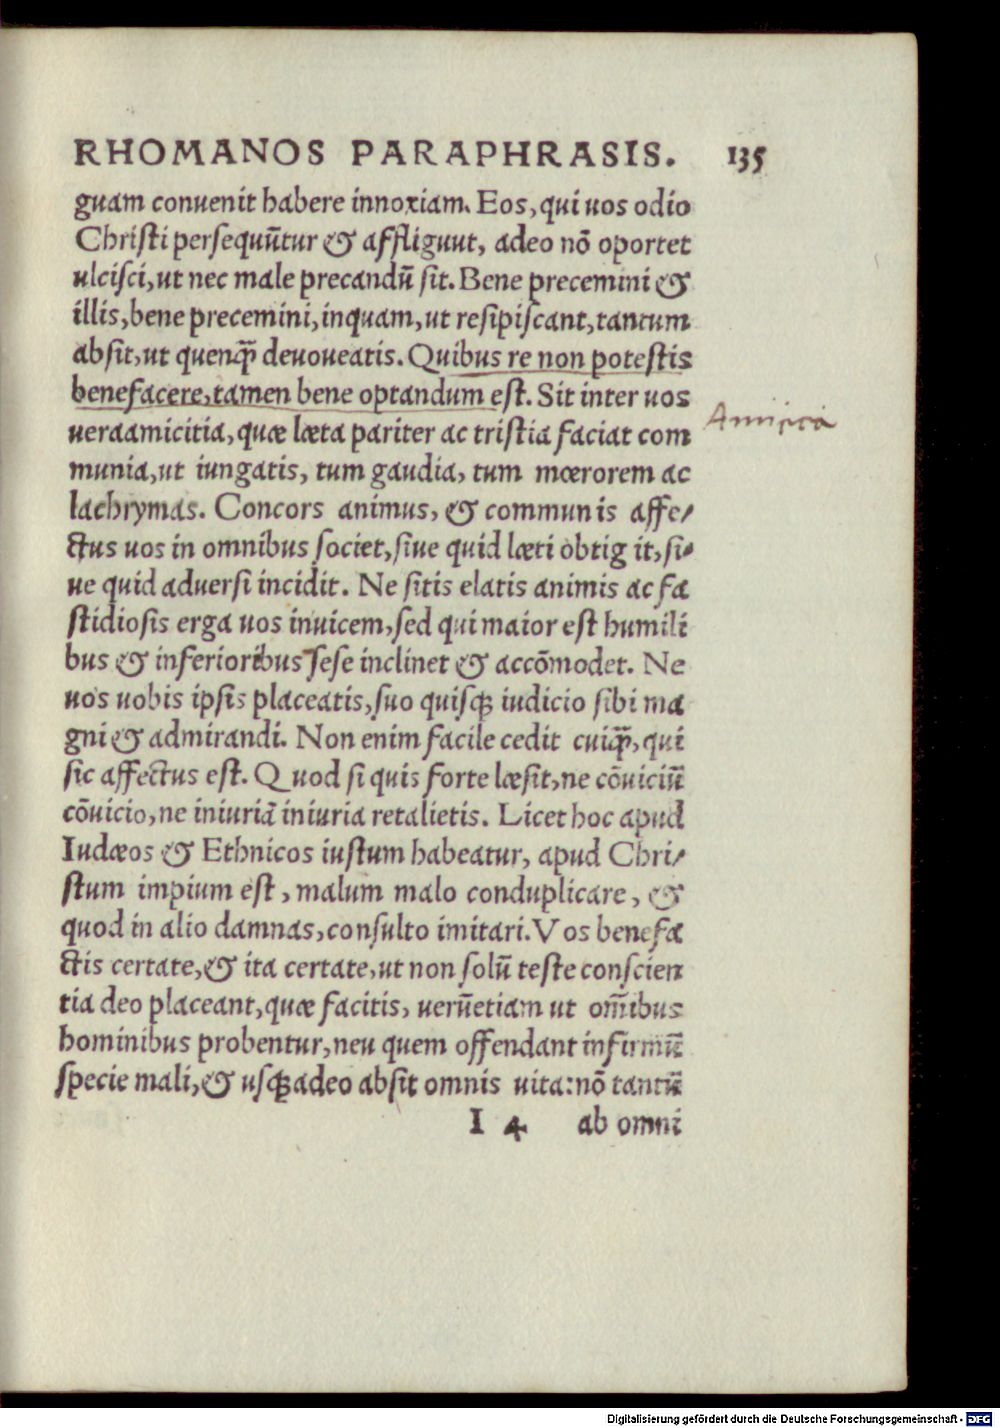 RHOMANOS PARAPHRASIS. 135
guam conuenit habere innoxiam. Eos, qui uos odio
Christi persequũtur & affligunt, adeo nõ oportet
ulcisci, ut nec male precandũ sit. Bene precemini &
illis, bene precemini, inquam, ut resipiscant, tantum
absit, ut quenꝗ̃ deuoueatis. Quibus re non potestis
benefacere, tamen bene optandum est. Sit inter uos
ueraamicitia, quæ læta pariter ac tristia faciat com
Amicitia
munia, ut iungatis, tum gaudia, tum mœrorem ac
lachrymas. Concors animus, & communis affe/
ctus uos in omnibus societ, siue quid læti obtig it, si/
ue quid aduersi incidit. Ne sitis elatis animis ac fa
stidiosis erga uos inuicem, sed qui maior est humili
bus & inferioribus sese inclinet & accõmodet. Ne
uos uobis ipsis placeatis, suo quisꝗ iudicio sibi ma
gni & admirandi. Non enim facile cedit cuiꝗ̃, qui
sic affectus est. Quod si quis forte læsit, ne cõuiciũ
cõuicio, ne iniuriã iniuria retalietis. Licet hoc apud
Iudæos & Ethnicos iustum habeatur, apud Chri/
stum impium est, malum malo conduplicare, &
quod in alio damnas, consulto imitari. Vos benefa
ctis certate, & ita certate, ut non solũ teste conscien
tia deo placeant, quæ facitis, uerũetiam ut om̃ibus
hominibus probentur, neu quem offendant infirmũ
specie mali, & usꝗadeo absit omnis uita: nõ tantũ
I 4 ab omni
Digitalisierung gefördert durch die Deutsche Forschungsgemeinschaft - DFG